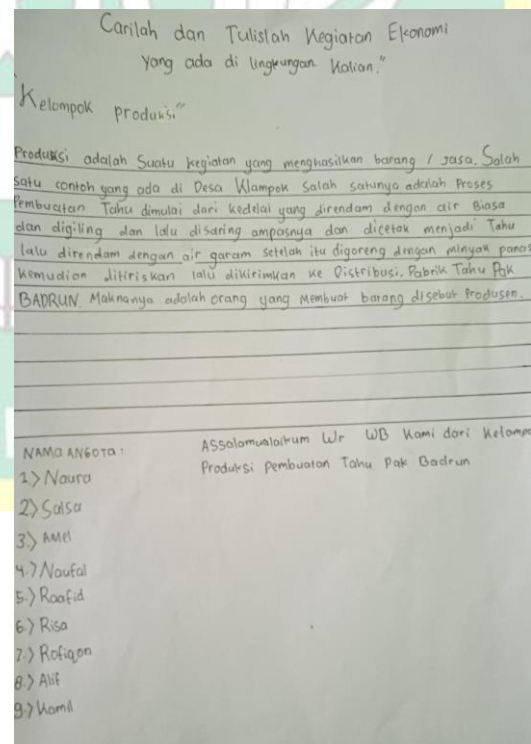 Carilah dan Tulislah Kegiatan Ekonomi
yang ada di lingkungan Kalian."
"Kelompok produksi"
Produksi adalah Suatu kegiatan yang menghasilkan barang / Jasa. Salah
satu contoh yang ada di Desa Klampok Salah satunya adalah Proses
Pembuatan Tahu dimulai dari kedelai yang direndam dengan air Biasa
dan digiling dan lalu disaring ampasnya dan dicetak menjadi Tahu
lalu direndam dengan air garam setelah itu digoreng dengan minyak panas
Kemudian ditiriskan lalu dikirimkan ke Distribusi. Pabrik Tahu Pak
BADRUN. Maknanya adalah orang yang Membuat barang disebut Produsen.
NAMA ANGOTA:
1.) Naura
2.) Salsa
3.) Amel
4.) Naufal
5.) Raafid
6.) Risa
7.) Rofiqon
8.) Alif
9.) Kamil
Assalamualaikum Wr WB Kami dari Kelompo
Produksi Pembuatan Tahu Pak Badrun